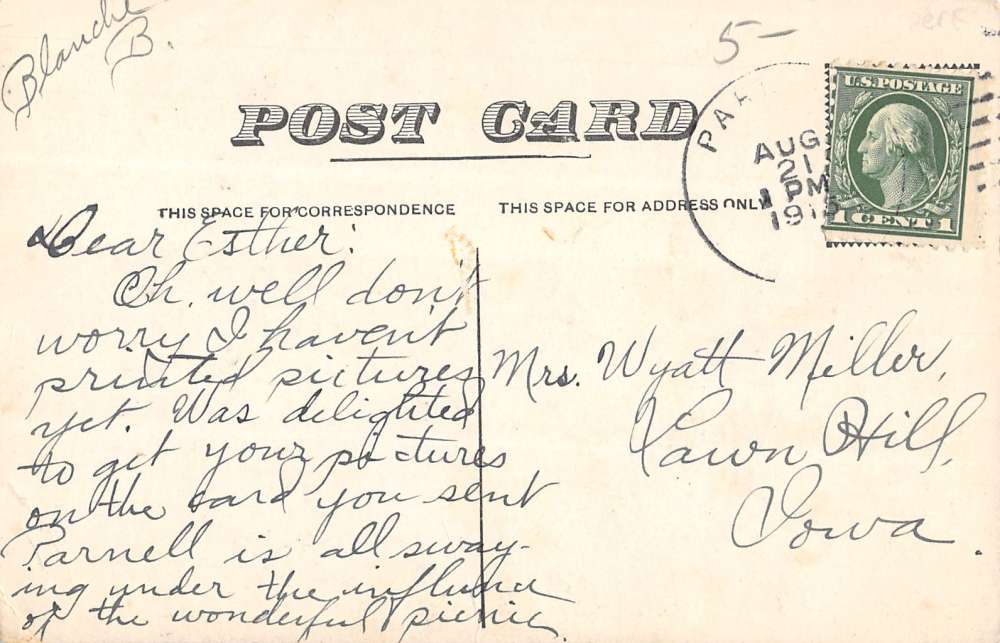 Blanche
B.
5-
POST CARD
PAR
AUG
21
1 PM
191
U.S. POSTAGE
1 CENT 1
THIS SPACE FOR CORRESPONDENCE
THIS SPACE FOR ADDRESS ONLY
Dear Esther:
Oh, well don't
worry I haven't
printed pictures
yet. Was delighted
to get your pictures
on the card you sent
Parnell is all sway-
ing under the influence
of the wonderful picnic
Mrs. Wyatt Miller,
Lawn Hill,
Iowa.